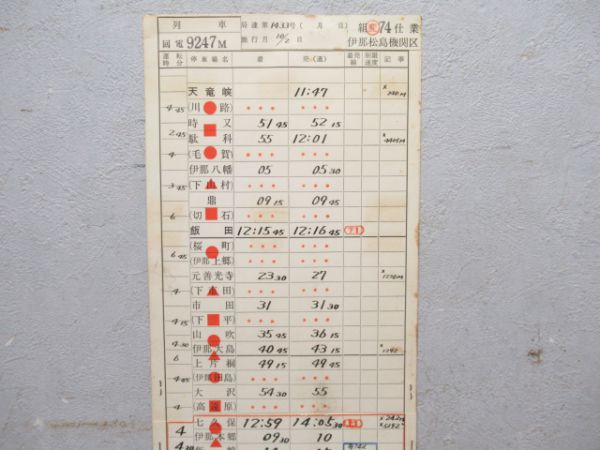 列車 局達第1433号(月日) 組変74仕業
回電9247M 施行月10/2日 伊那松島機関区
運転時分 停車場名 着 発(通) 着発線 制限速度 記事
天竜峡 11:47
4 45 (川路) ・・・ ・・・
時又 51 45 52 15
2 45 駄科 55 12:01
4 (毛賀) ・・・ ・・・
伊那八幡 05 05 30
3 45 (下山村) ・・・ ・・・
鼎 09 15 09 45
6 (切石) ・・・ ・・・
飯田 12:15 45 12:16 45
(桜町) ・・・ ・・・
6 45 (伊那上郷) ・・・ ・・・
元善光寺 23 30 27
4 (下市田) ・・・ ・・・
市田 31 31 30
4 15 (下平) ・・・ ・・・
山吹 35 45 36 15
4 30 伊那大島 40 45 43 15
6 上片桐 49 15 49 45
4 45 (伊那田島) ・・・ ・・・
大沢 54 30 55
(高遠原) ・・・ ・・・
七久保 12:59 14:05 30
4 伊那本郷 09 30 10